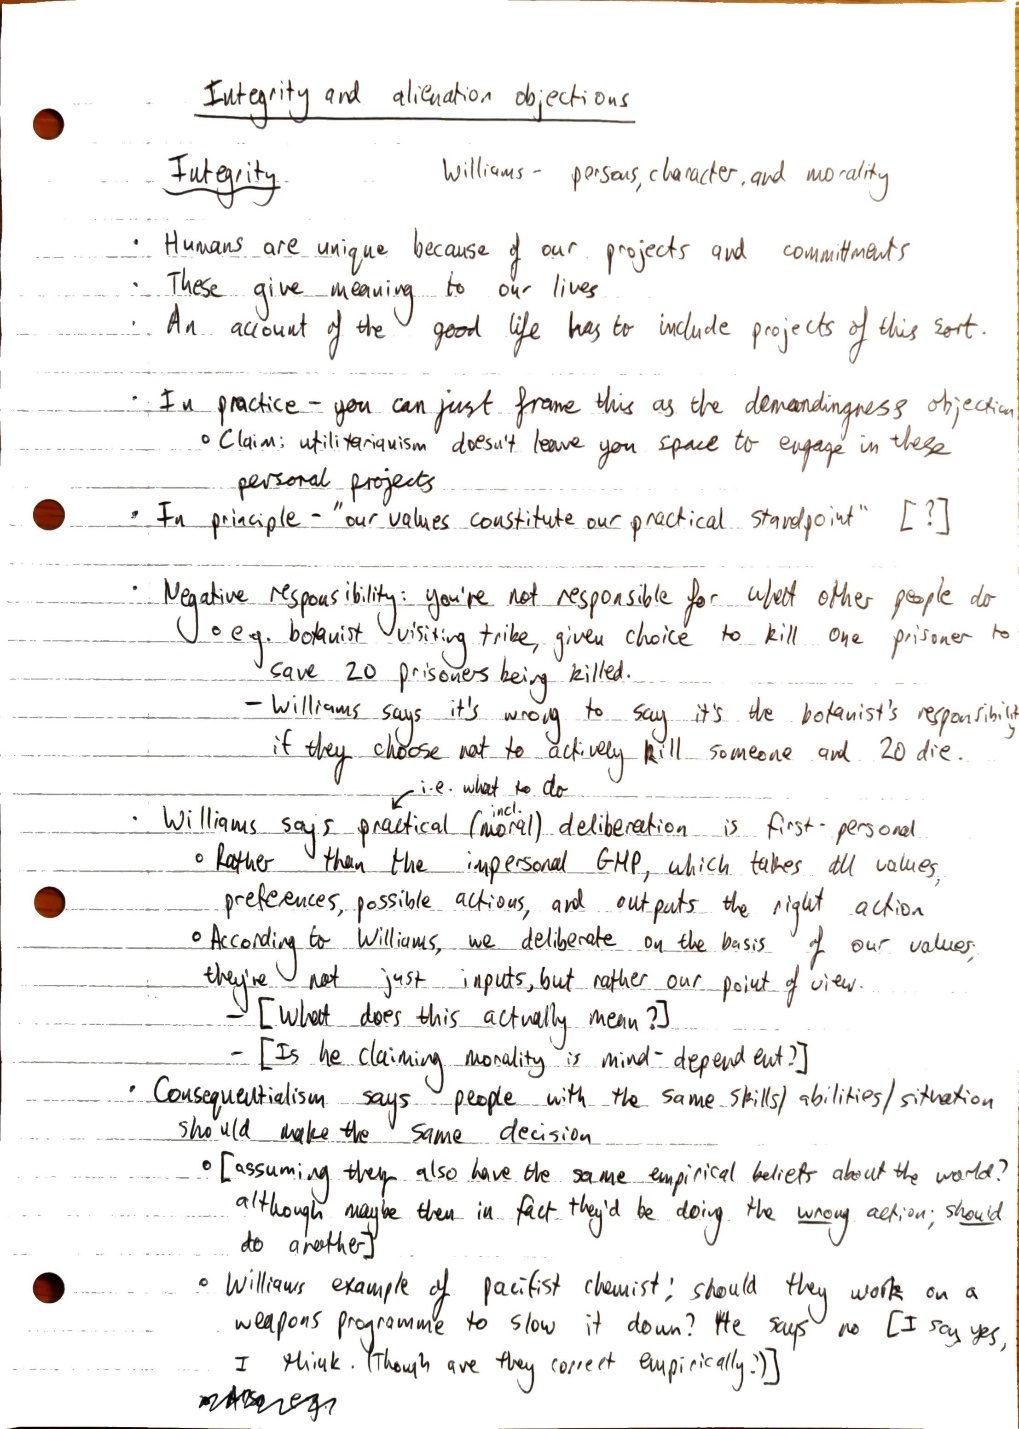 Integrity and alienation objections
Integrity Williams - persons, character, and morality
· Humans are unique because of our projects and committments
· These give meaning to our lives
· An account of the good life has to include projects of this sort.
· In practice - you can just frame this as the demandingness objection
o Claim: utilitarianism doesn't leave you space to engage in these
personal projects
· In principle - "our values constitute our practical standpoint" [?]
· Negative responsibility: you're not responsible for what other people do
o e.g. botanist visiting tribe, given choice to kill one prisoner to
save 20 prisoners being killed.
- Williams says it's wrong to say it's the botanist's responsibility
if they choose not to actively kill someone and 20 die.
i.e. what to do
· Williams says practical (incl. moral) deliberation is first-personal
o Rather than the impersonal GHP, which takes all values,
preferences, possible actions, and outputs the right action
o According to Williams, we deliberate on the basis of our values;
they're not just inputs, but rather our point of view.
- [What does this actually mean?]
- [Is he claiming morality is mind-dependent?]
· Consequentialism says people with the same skills/abilities/situation
should make the same decision
o [assuming they also have the same empirical beliefs about the world?
although maybe then in fact they'd be doing the wrong action; should
do another]
o Williams example of pacifist chemist; should they work on a
weapons programme to slow it down? He says no [I say yes,
I think. (Though are they correct empirically?)]